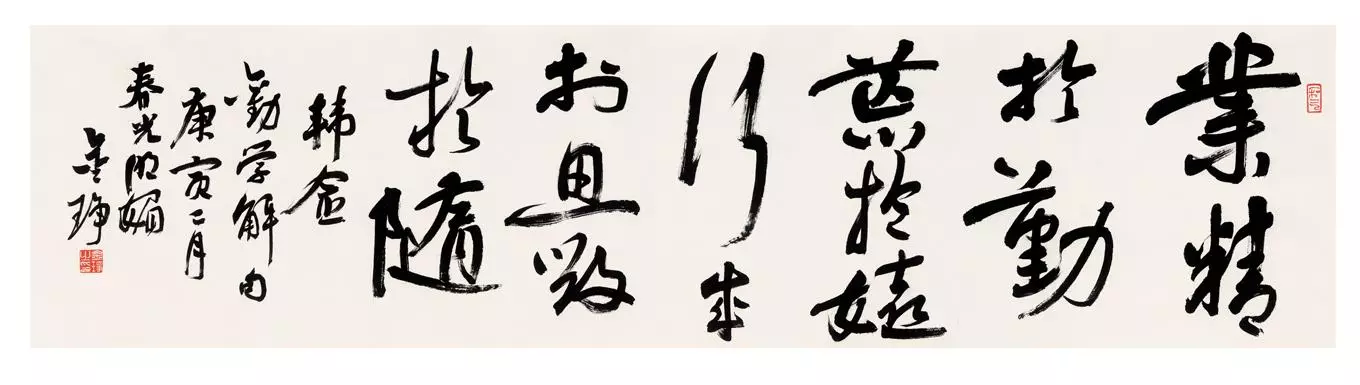 業精
於勤
荒於嬉
行成
於思毁
於随
韩愈
勸学解句
庚寅二月
春光明媚
金琤